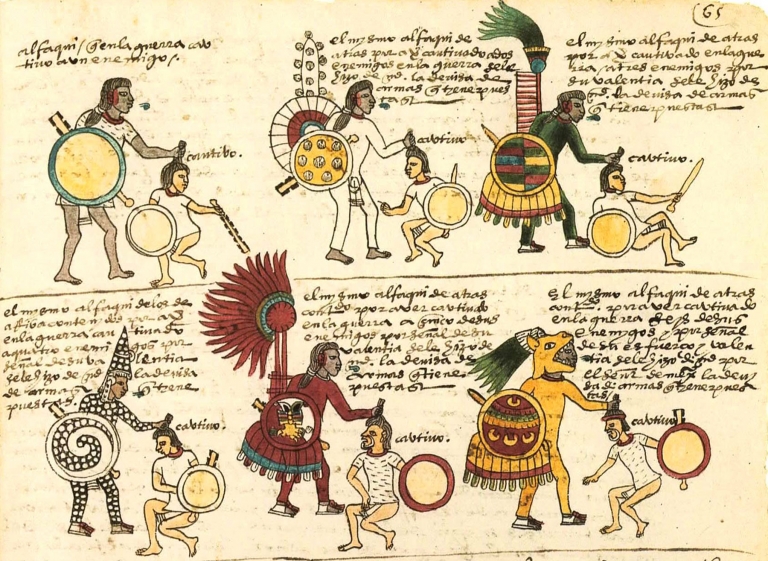 65
alfaqui / q̃ en la guerra cau
tivo a un enemigo /.
cautivo.
el mysmo alfaqui de
atras por a q̃ cautivado a dos
enemigos en la guerra se le
hizo de md. la devisa de
armas q̃ tiene pues
tas
cautivo
el mysmo alfaqui de atras
por a q̃ cautivado en la gue
rra / a tres enemigos por
su valentia se le hizo de
md. la devisa de armas
q̃ tiene puestas
cautivo.
el mysmo alfaqui de los de
en la guerra cau tivado
a quatro enemi gos por
señal de su va lentia
se le hizo de md la devisa
de armas q̃ tiene
puestas
cautivo.
el mysmo alfaqui de atras
por aver cautivado
en la guerra a cinco de sus
enemigos por señal de su
valentia se le hizo de
md. la devisa de
armas q̃ tiene
puestas
cautivo.
El mysmo alfaqui de atras
por aver cautivado
en la guerra seys de sus
enemygos / y por señal
de su esfuerço / y valen
tia se le hizo de md por
el señor de mexco la devi
sa de armas q̃ tiene pues
tas
cautivo.